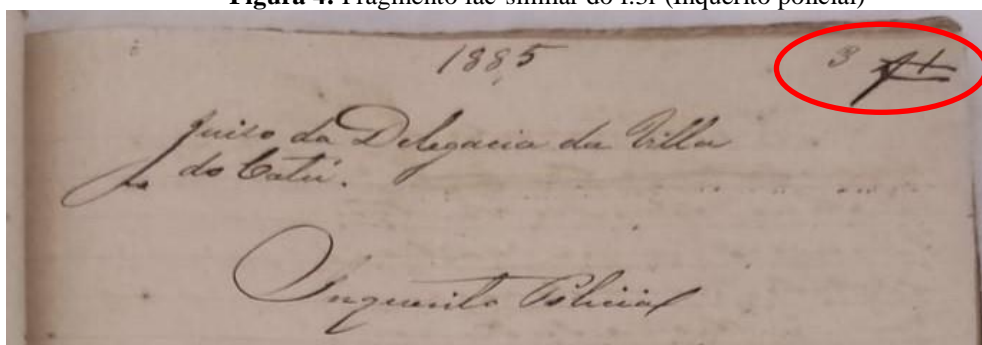 Figura 4: Fragmento fac-similar do f.3r (Inquérito policial)
1885 3 f1
Juiso da Delegacia da Villa
do Catú.
Inquerito Policial